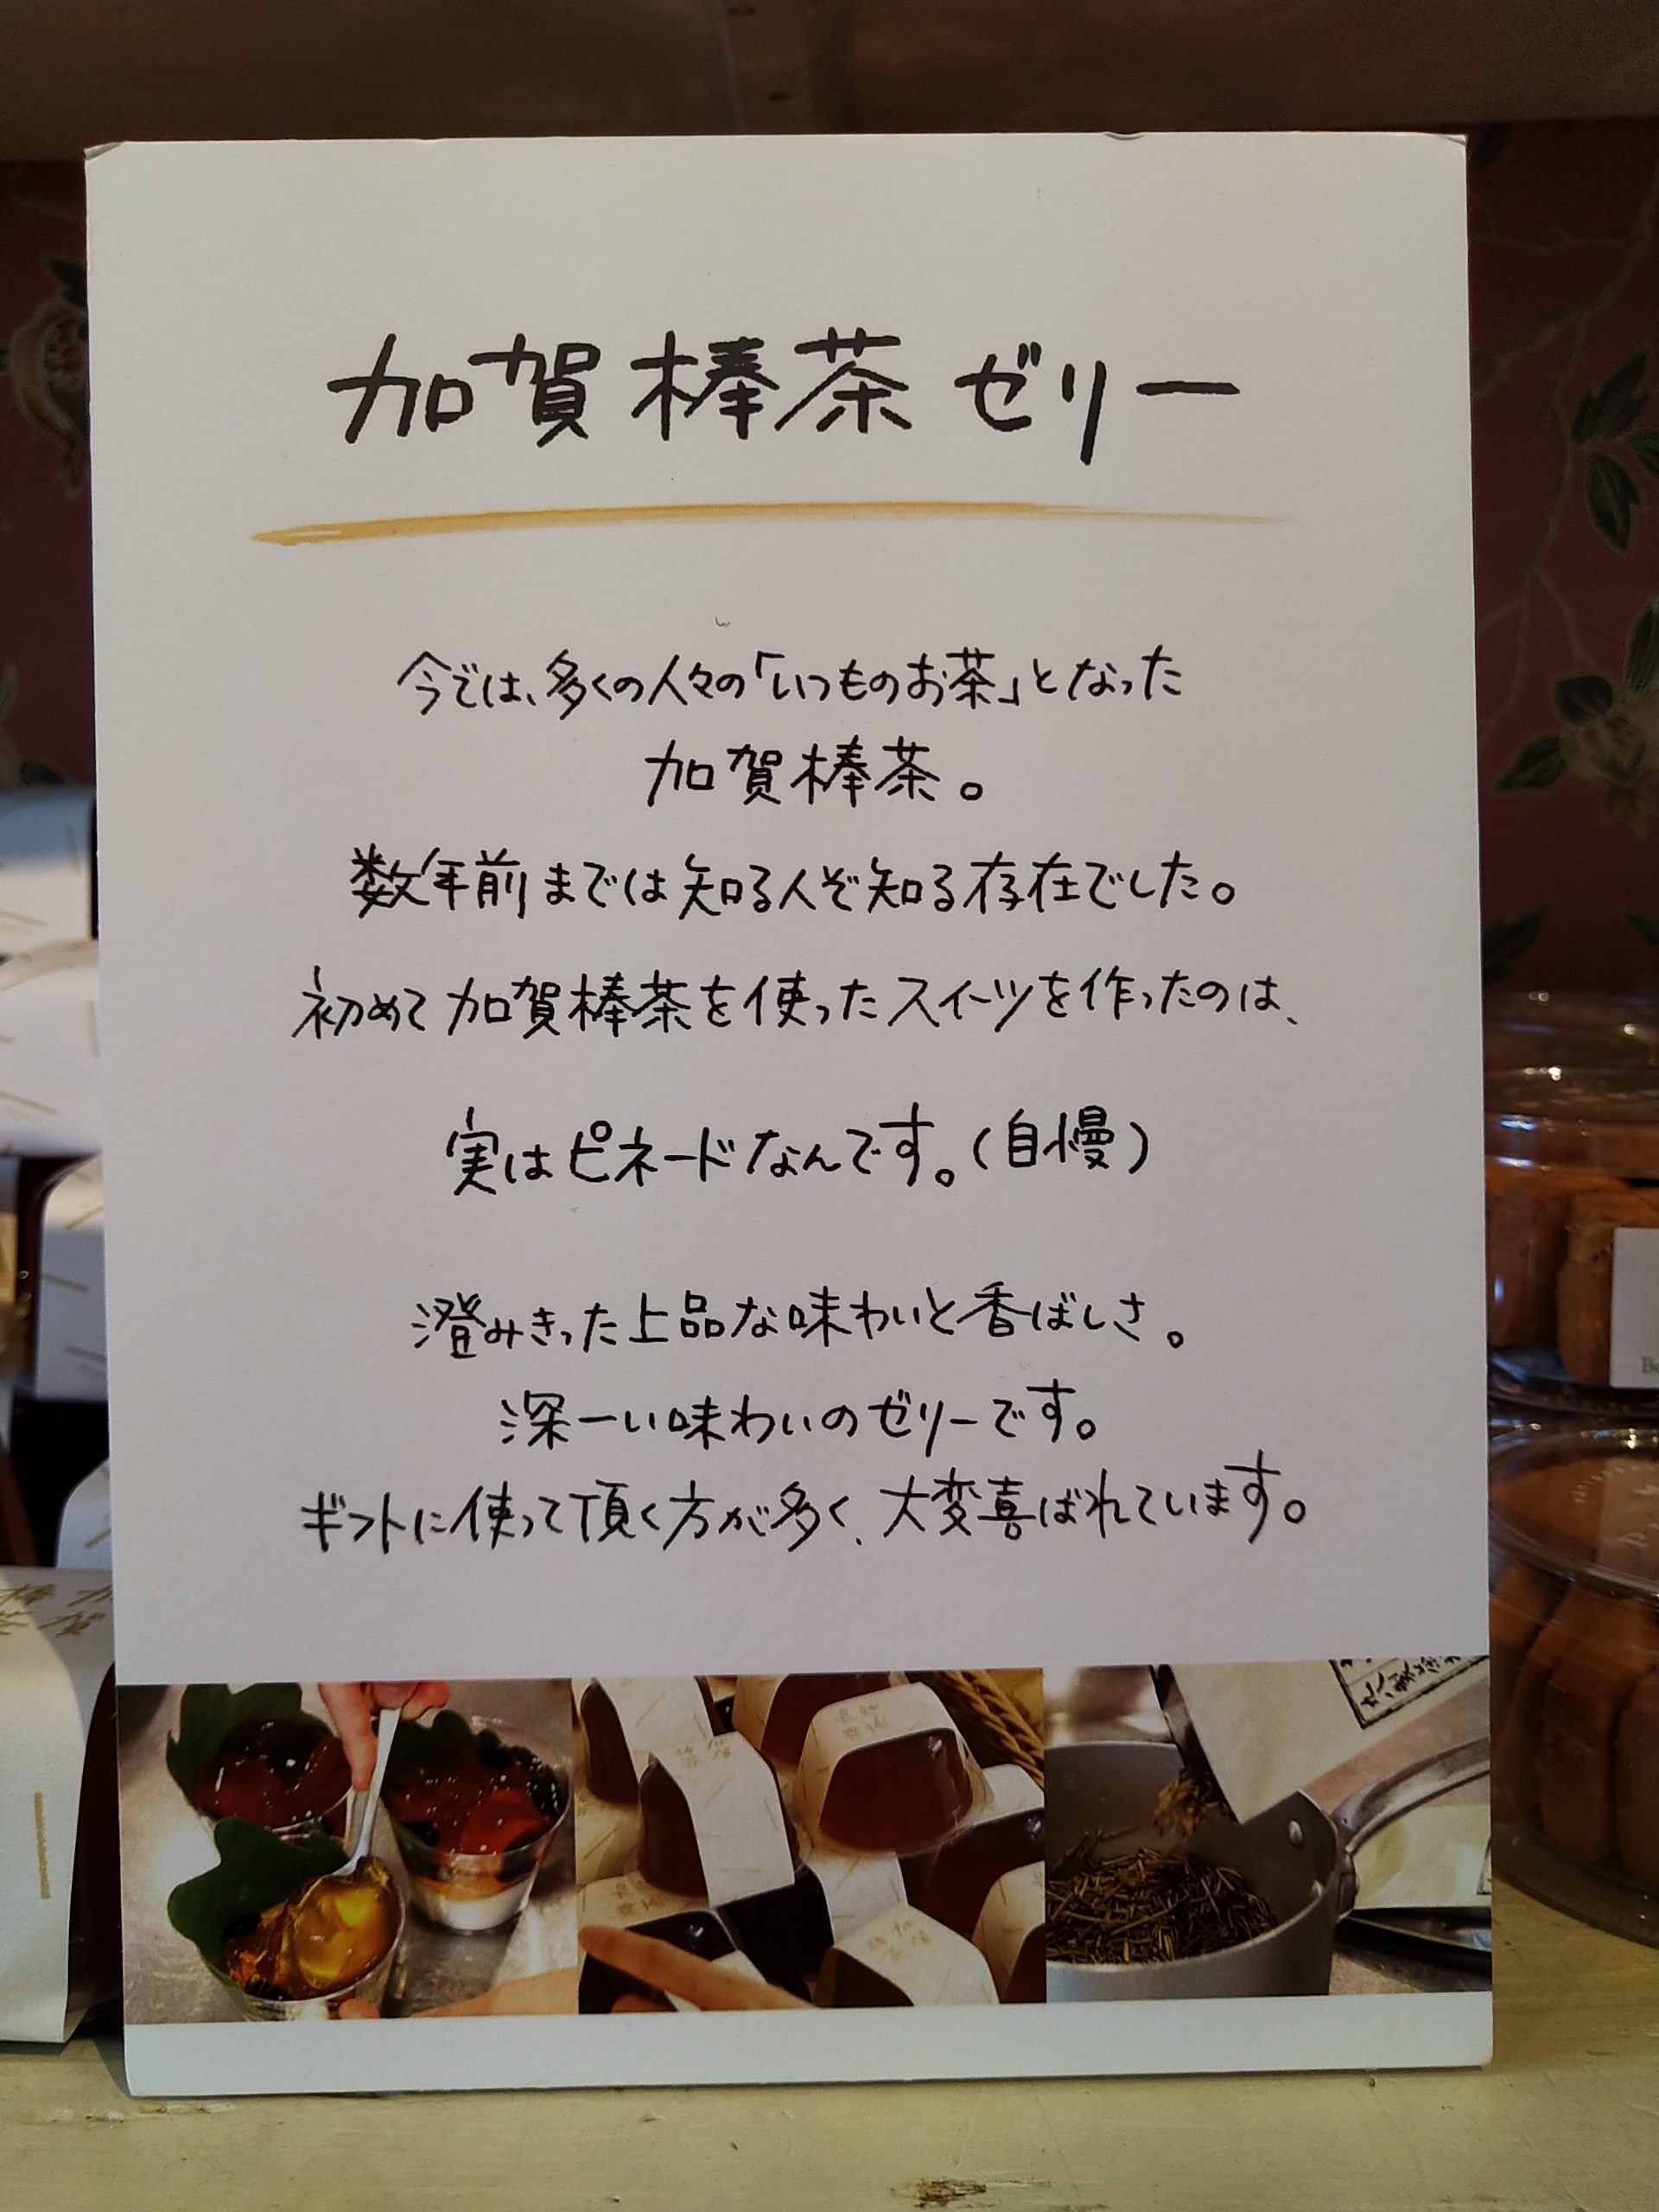 加賀棒茶ゼリー
今では、多くの人々の「いつものお茶」となった
加賀棒茶。
数年前までは知る人ぞ知る存在でした。
初めて加賀棒茶を使ったスイーツを作ったのは、
実はピネードなんです。(自慢)
澄みきった上品な味わいと香ばしさ。
深ーい味わいのゼリーです。
ギフトに使って頂く方が多く、大変喜ばれています。